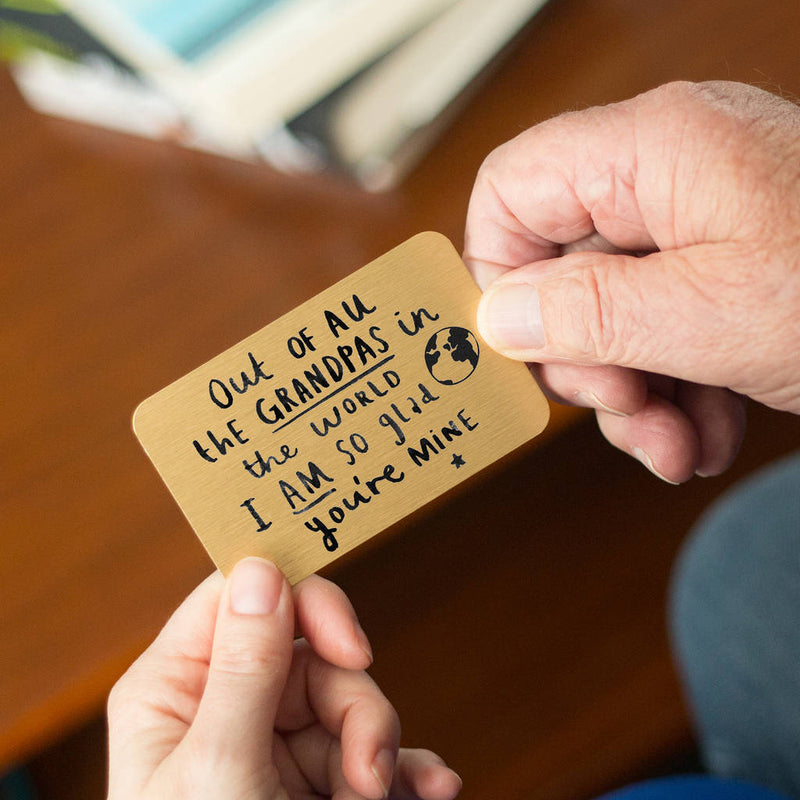 Out OF All
thE GRANDPAS in
the WORLD
I AM SO glad
you're MINE